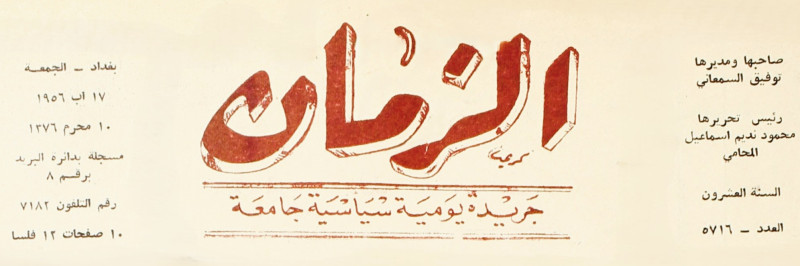 صاحبها ومديرها
توفيق السمعاني
رئيس تحريرها
محمود نديم اسماعيل
المحامي
السنة العشرون
العدد – ٥٧١٦
الزمان
جريدة يومية سياسية جامعة
بغداد – الجمعة
١٧ اب ١٩٥٦
١٠ محرم ١٣٧٦
مسجلة بدائرة البريد
برقم ٨
رقم التلفون ٧١٨٢
١٠ صفحات ١٢ فلسا